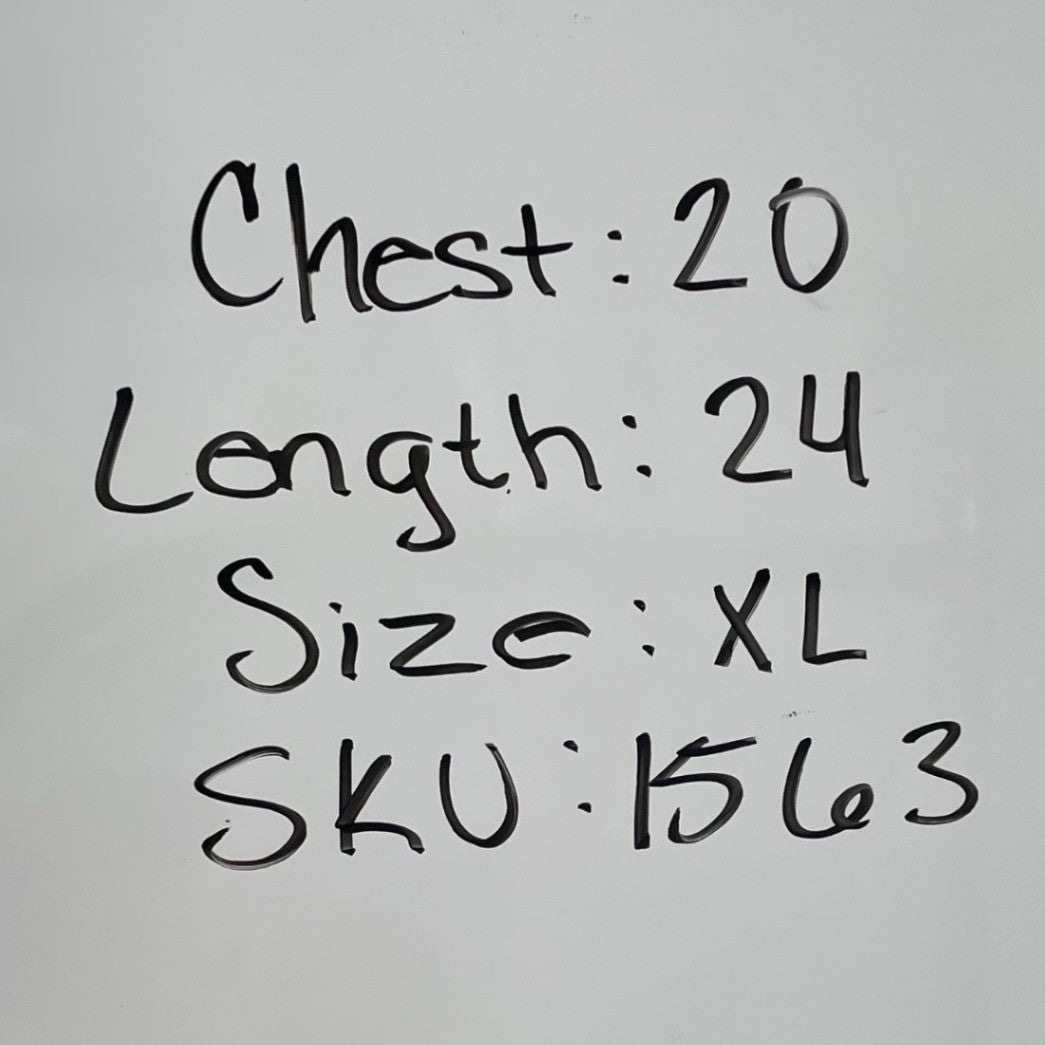 Chest: 20
Length: 24
Size: XL
SKU: 1563